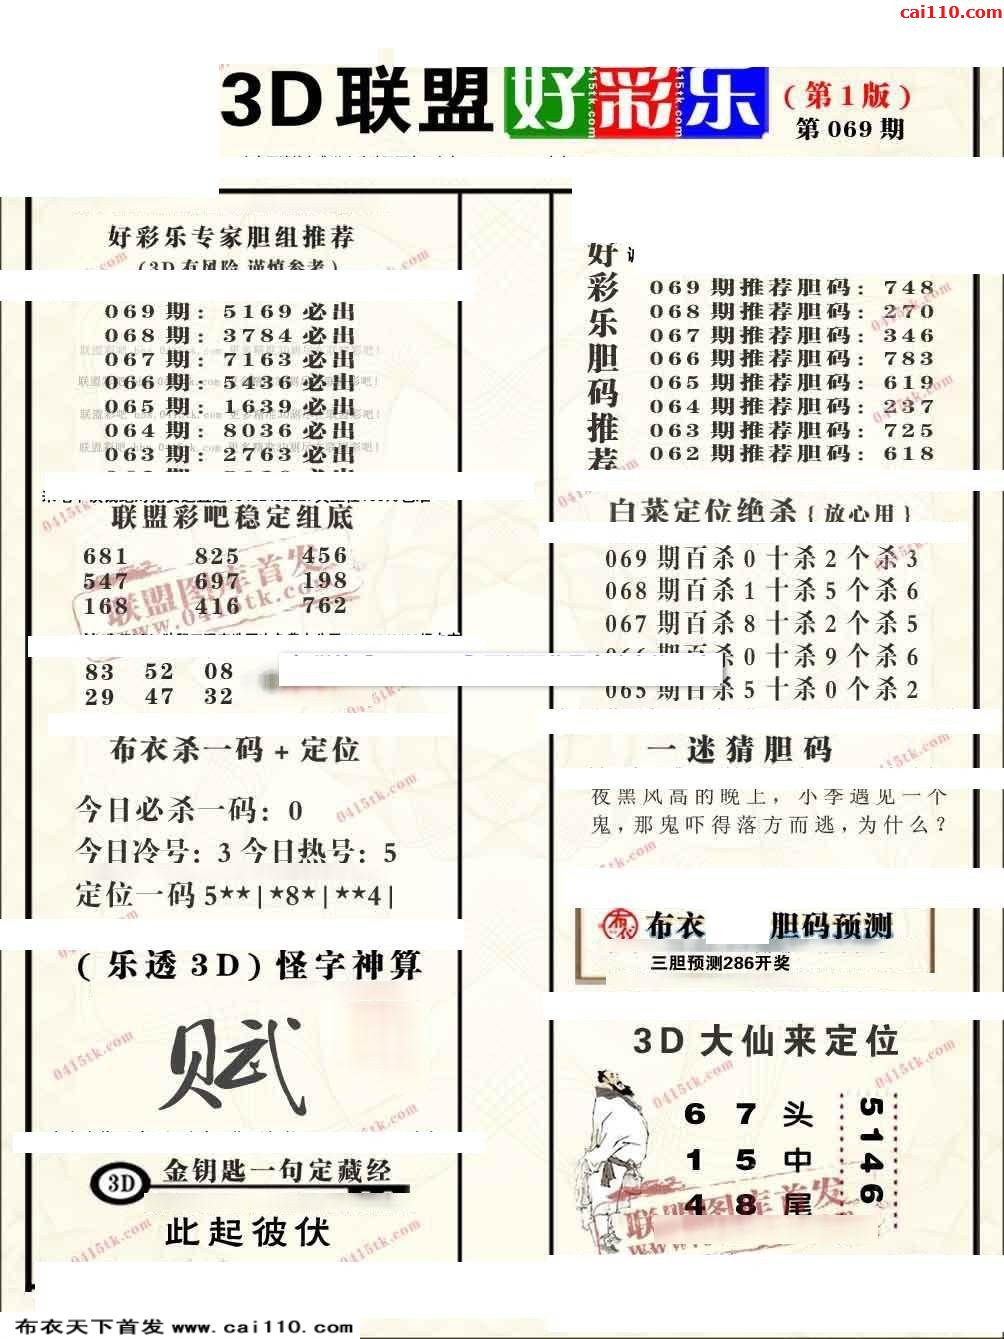 cai110.com
3D联盟好彩乐
(第1版)
第069期
好彩乐专家胆组推荐
(3D有风险 谨慎参考)
069期: 5169必出
068期: 3784必出
067期: 7163必出
066期: 5436必出
065期: 1639必出
064期: 8036必出
063期: 2763必出
联盟彩吧稳定组底
681 825 456
547 697 198
168 416 762
83 52 08
29 47 32
布衣杀一码+定位
今日必杀一码: 0
今日冷号: 3 今日热号: 5
定位一码 5**|*8*|**4|
(乐透3D)怪字神算
赋
3D 金钥匙一句定藏经
此起彼伏
好彩乐胆码推荐
069期推荐胆码: 748
068期推荐胆码: 270
067期推荐胆码: 346
066期推荐胆码: 783
065期推荐胆码: 619
064期推荐胆码: 237
063期推荐胆码: 725
062期推荐胆码: 618
白菜定位绝杀{放心用}
069期百杀0十杀2个杀3
068期百杀1十杀5个杀6
067期百杀8十杀2个杀5
066期百杀0十杀9个杀6
065期百杀5十杀0个杀2
一迷猜胆码
夜黑风高的晚上，小李遇见一个
鬼，那鬼吓得落方而逃，为什么？
布衣 布衣 胆码预测
三胆预测286开奖
3D大仙来定位
6 7 头
1 5 中
4 8 尾
5146
联盟图库首发
www.0415tk.com
布衣天下首发 www.cai110.com